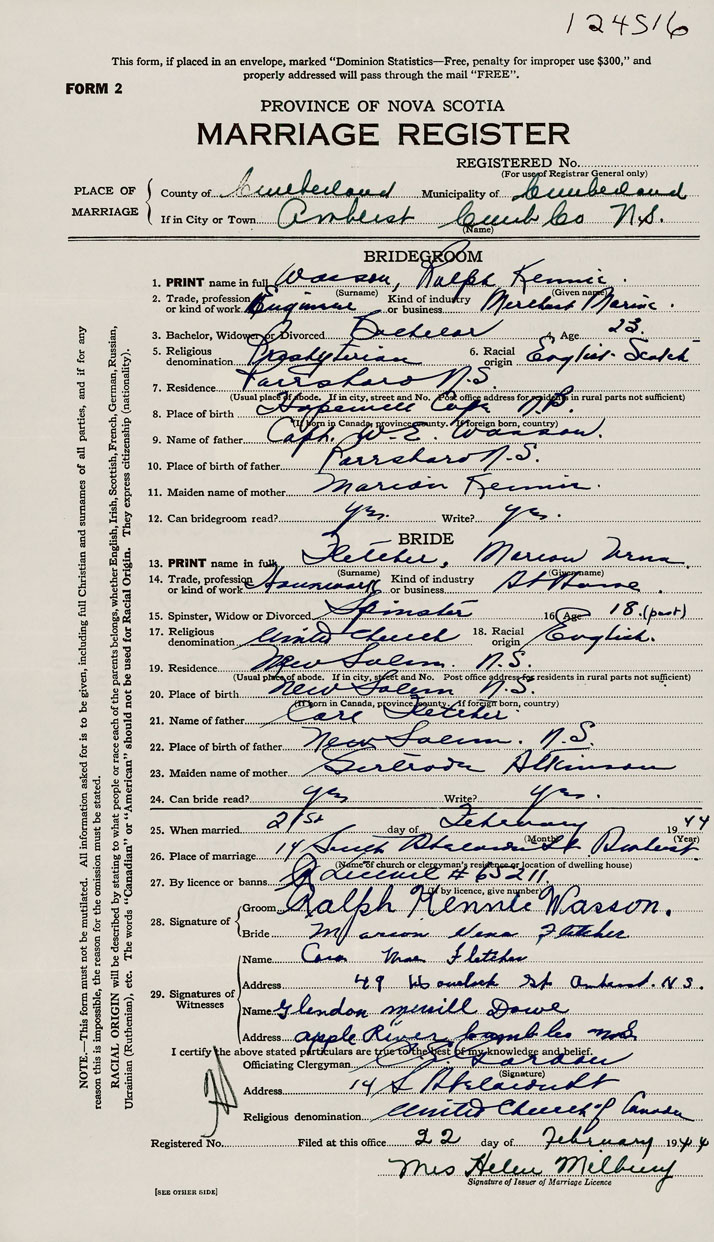 124516
This form, if placed in an envelope, marked "Dominion Statistics—Free, penalty for improper use $300," and
properly addressed will pass through the mail "FREE".
FORM 2
PROVINCE OF NOVA SCOTIA
MARRIAGE REGISTER
REGISTERED No.
(For use of Registrar General only)
PLACE OF MARRIAGE
County of Cumberland Municipality of Cumberland
If in City or Town Amherst Cumb Co N.S.
(Name)
BRIDEGROOM
1. PRINT name in full Wasson, Ralph Kennie.
(Surname) (Given name)
2. Trade, profession or kind of work Engineer Kind of industry or business Merchant Marine.
3. Bachelor, Widower or Divorced Bachelor 4. Age 23.
5. Religious denomination Presbyterian 6. Racial origin English-Scotch
7. Residence Parrsboro N.S.
(Usual place of abode. If in city, street and No. Post office address for residents in rural parts not sufficient)
8. Place of birth Hopewell Cape N.B.
(If born in Canada, province, county. If foreign born, country)
9. Name of father Capt. W. E. Wasson.
10. Place of birth of father Parrsboro N.S.
11. Maiden name of mother Marion Kennie.
12. Can bridegroom read? yes. Write? yes.
BRIDE
13. PRINT name in full Fletcher, Marion
(Surname) (Given name)
14. Trade, profession or kind of work Housework Kind of industry or business At Home.
15. Spinster, Widow or Divorced Spinster 16 Age 18. (past)
17. Religious denomination United Church 18. Racial origin English.
19. Residence New Salem. N.S.
(Usual place of abode. If in city, street and No. Post office address for residents in rural parts not sufficient)
20. Place of birth New Salem N.S.
(If born in Canada, province, county. If foreign born, country)
21. Name of father Carl Fletcher
22. Place of birth of father New Salem. N.S.
23. Maiden name of mother Gertrude Atkinson
24. Can bride read? yes Write? yes.
25. When married 21st day of February 1944
(Month) (Year)
26. Place of marriage 14 South Adelaide St. Amherst
(Name of church or clergyman's residence or location of dwelling house)
27. By licence or banns Licence # 65211.
(If by licence, give number)
28. Signature of
Groom Ralph Kennie Wasson.
Bride Marion Fletcher
29. Signatures of Witnesses
Name Cora Mae Fletcher
Address 49 Havelock St Amherst. N.S.
Name Glendon Merrill Dowe
Address apple River Cumb co N.S.
I certify the above stated particulars are true to the best of my knowledge and belief.
Officiating Clergyman
(Signature)
Address 14 S Adelaide St
Religious denomination United Church of Canada
Registered No. Filed at this office 22 day of February 1944
Mrs Helen Milbury
Signature of Issuer of Marriage Licence
[SEE OTHER SIDE]
NOTE.—This form must not be mutilated. All information asked for is to be given, including full Christian and surnames of all parties, and if for any
reason this is impossible, the reason for the omission must be stated.
RACIAL ORIGIN will be described by stating to what people or race each of the parents belongs, whether English, Irish, Scottish, French, German, Russian,
Ukrainian (Ruthenian), etc. The words "Canadian" or "American" should not be used for Racial Origin. They express citizenship (nationality).